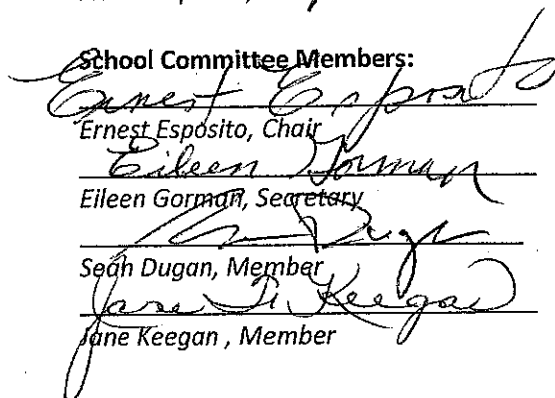 School Committee Members:
Ernest Esposito
Ernest Esposito, Chair
Eileen Gorman
Eileen Gorman, Secretary
Dugan
Sean Dugan, Member
Jane Keegan
Jane Keegan , Member